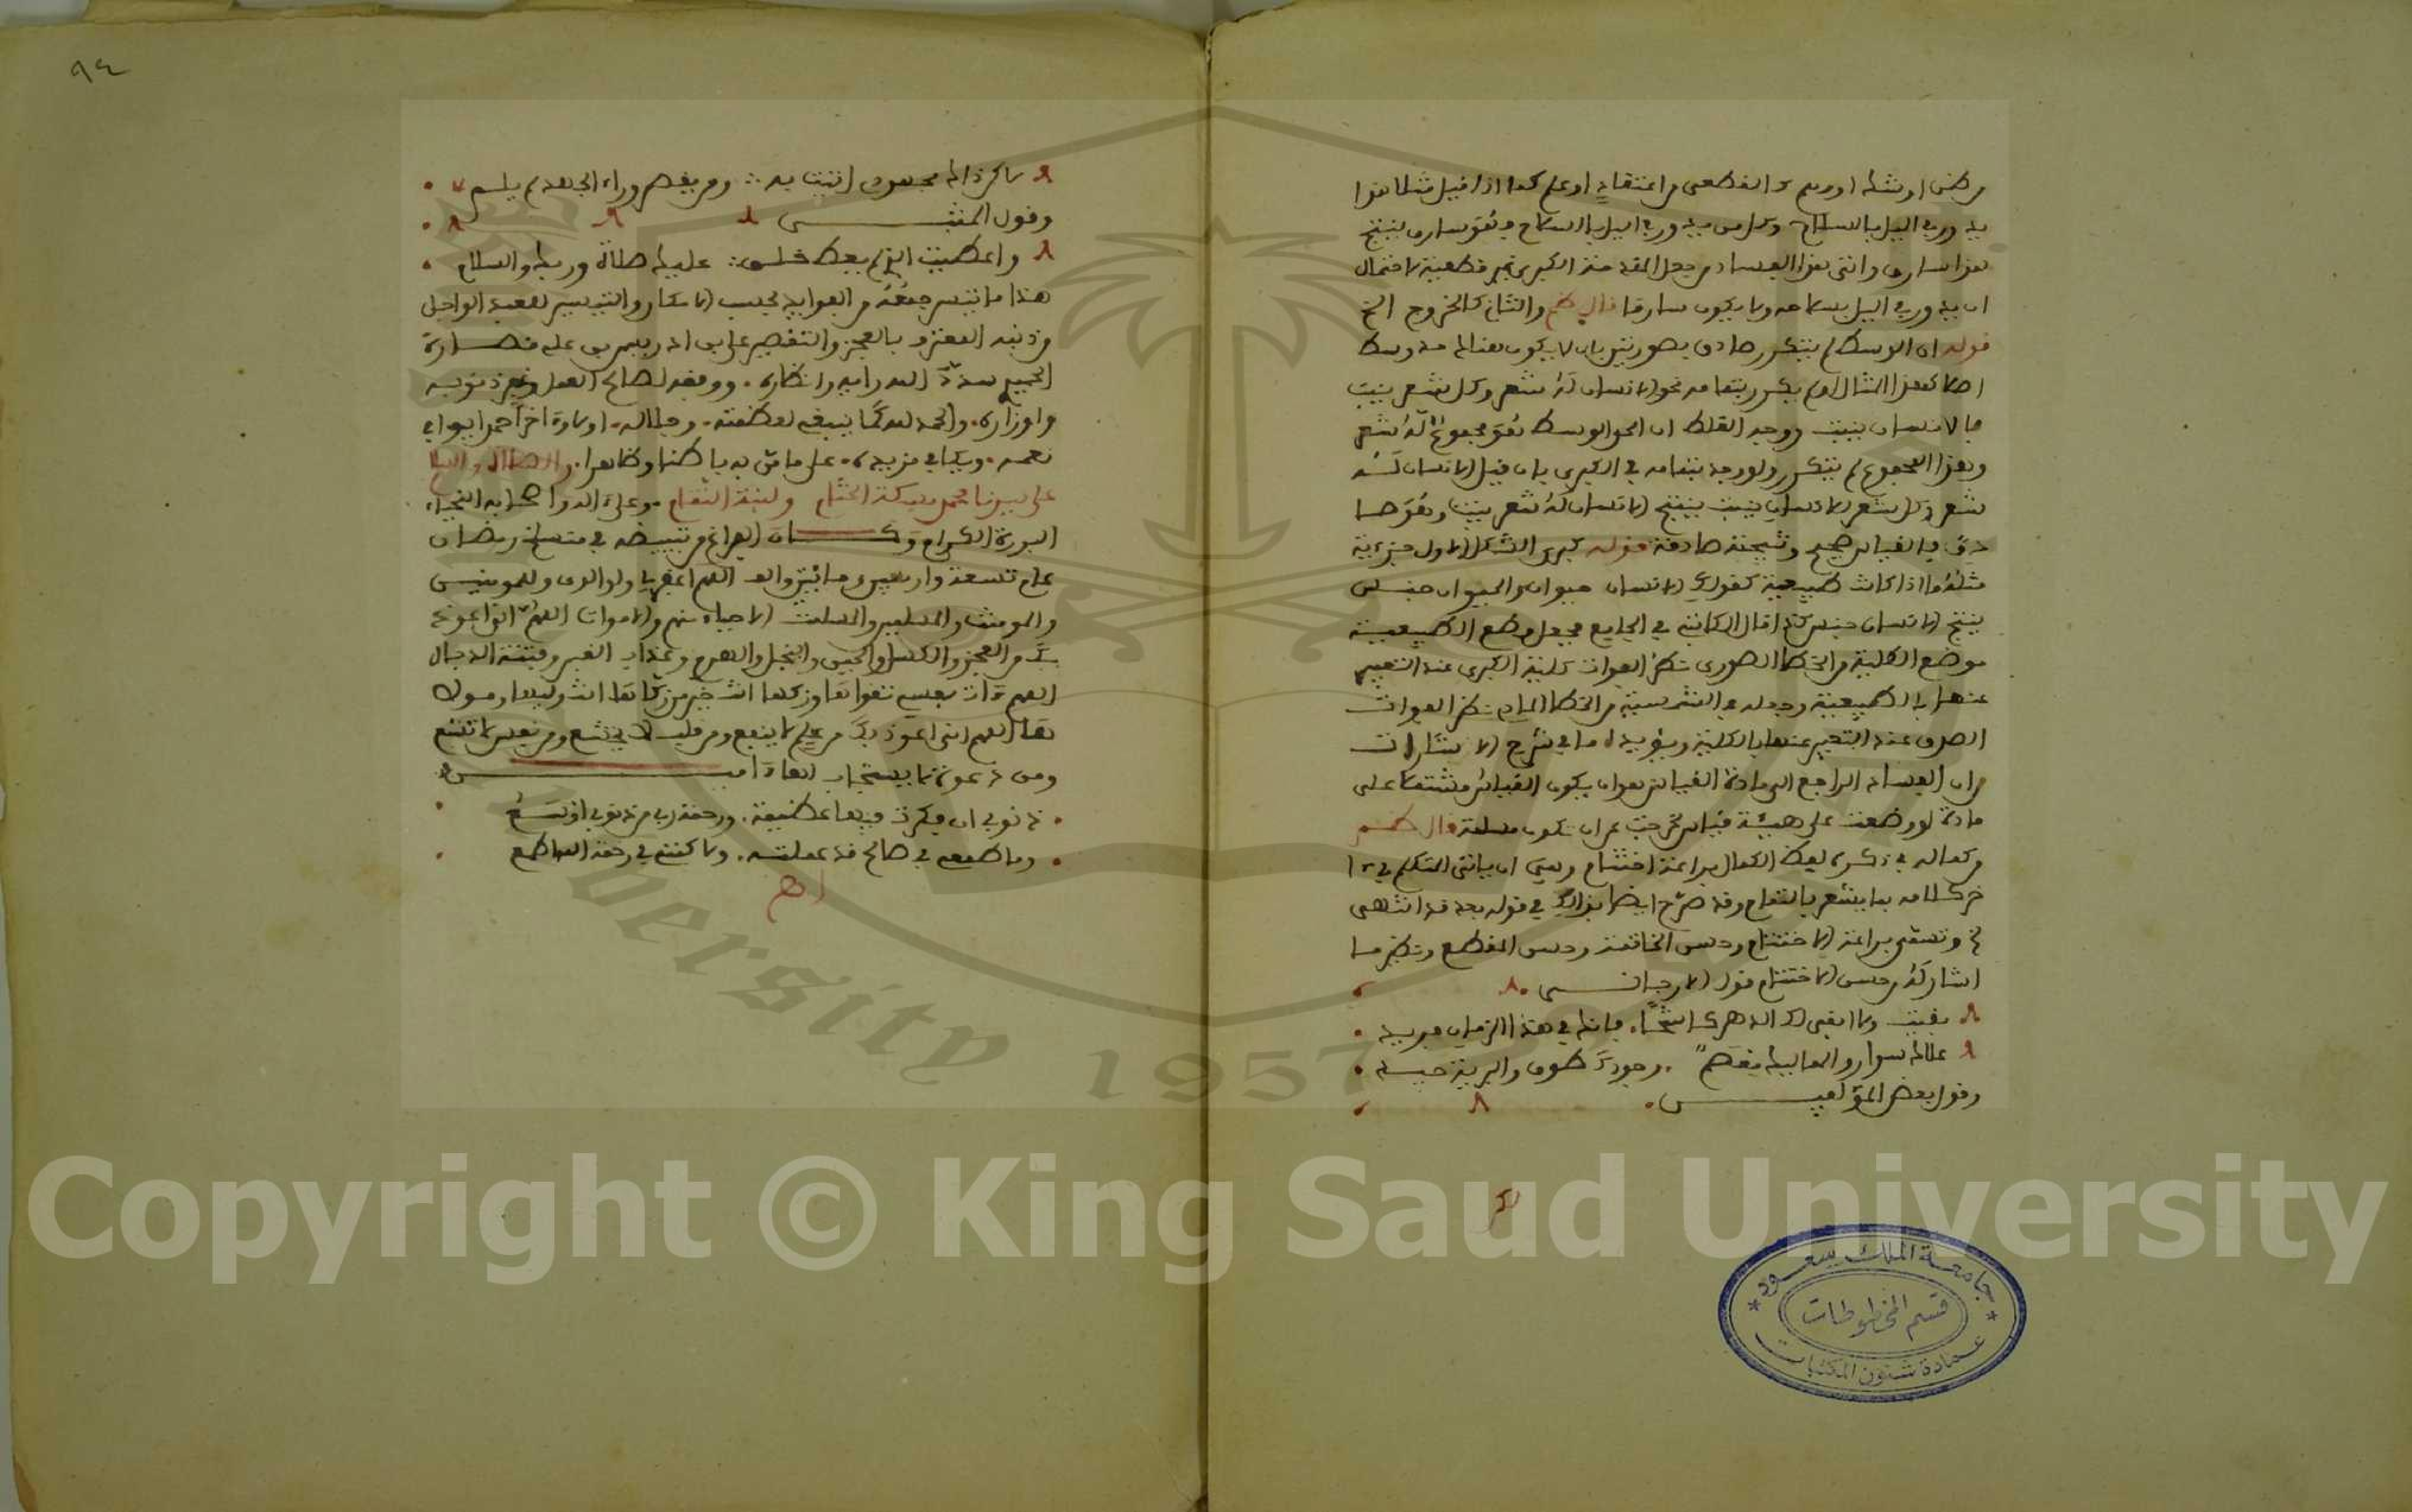 من ظن او شك او وهم لا القطعي من اعتقاد او علم كما اذا قيل مثلا هذا
يدور في اليل بالسلاح وكل من يدور في اليل بالسلاح فهو سارق ينتج
هذا سارق واتى هذا الفساد من جعل المقدمة الكبرى غير قطعية لاحتمال
ان يدور في اليل بسلاحه ولا يكون سارقا قال والثاني كالخروج الخ
قوله ان الوسط لم يتكرر صادق بصورتين بان لا يكون هنالك حد وسط
اصلا كهذا المثال او لم يكرر بتمامه نحو الانسان له شعر وكل شعر ينبت
فالانسان ينبت ووجه الغلط ان الوسط هو مجموع له شعر
وهذا المجموع لم يتكرر ولو وجد بتمامه في الكبرى بان قيل الانسان له
شعر وكل شعر الانسان ينبت ينتج الانسان له شعر ينبت وهو حسا
حق فالقياس صحيح ونتيجته صادقة قوله كبرى الشكل الاول جزءية
مثله ما اذا كانت طبيعية كقولك الانسان حيوان والحيوان جنس
ينتج الانسان جنس كذا قال الكاتبي في الجامع فجعل وضع الطبيعية
موضع الكلية من الخطا الصوري نظرا لفوات كلية الكبرى عند التعبير
عنها بالطبيعية وجعله في الشمسية من الخطا المادي نظرا لفوات
الصدق عند التعبير عنها بالكلية ويؤيده ما في شرح الاشارات
من ان الفساد الراجع الى مادة القياس هو ان يكون القياس مشتملا على
مادة لو وضعت على هيئة قياس لخرجت عن ان تكون مسلمة قال
من كماله في ذكره لفظ الكمال براعة اختتام وهي ان ياتي المتكلم في ا
خر كلامه بما يشعر بالتمام وقد صرح ايضا بذلك في قوله بعد قد انتهى
الخ وتسمى براعة الاختتام وحسن الخاتمة وحسن المقطع ونظير ما
اشار له من حسن الاختتام قول الارجاني
بقيت ولا ابقى لك الدهر كاشحا فانك في هذا الزمان فريد
علاك سوار والممالك معصم وجودك طوق والبرية جيد
وقول بعض المؤلفين
جامعة الملك سعود
قسم المخطوطات
عمادة شئون المكتبات
٩٤
ما كر ذاك محمود اتيت به ومن يقصر وراء الجهد لم يلم
وقول المنشي
واعطيت الذي لم يعط خلق عليك صلاة ربك والسلام
هذا ما تيسر جمعه من الفوايد بحسب الامكان والتيسير لفقيد الواجل
من ذنبه المعترف بالعجز والتقصير علي بن
الحميري سدد الله رايه وانظاره ووفقه لصالح العمل وغفر ذنوبه
واوزاره والحمد لله كما ينبغي لعظمته وجلاله اولا واخرا حمدا يوافي
نعمه ويكافي مزيده على ما من به باطنا وظاهرا والصلاة والسلام
على سيدنا محمد مسكة الختام ولبنة التمام وعلى اله واصحابه النجباء
البررة الكرام وكان الفراغ من تبييضه في منسلخ رمضان
عام تسعة واربعين ومائتين والف اللهم اغفر لي ولوالدي وللمومنين
والمومنات والمسلمين والمسلمات الاحياء منهم والاموات اللهم اني اعوذ
بك من العجز والكسل والجبن والبخل والهرم وعذاب القبر وفتنة الدجال
اللهم ءات نفسي تقواها وزكها انت خير من زكاها انت وليها ومولا
ها اللهم اني اعوذ بك من علم لا ينفع ومن قلب لا يخشع ومن نفس لا تشبع
ومن دعوة لا يستجاب لها ءامين
ذنوبي ان فكرت فيها عظيمة ورحمة ربي من ذنوبي اوسع
وما طمعي في صالح قد عملته ولكنني في رحمة الله اطمع
اهـ